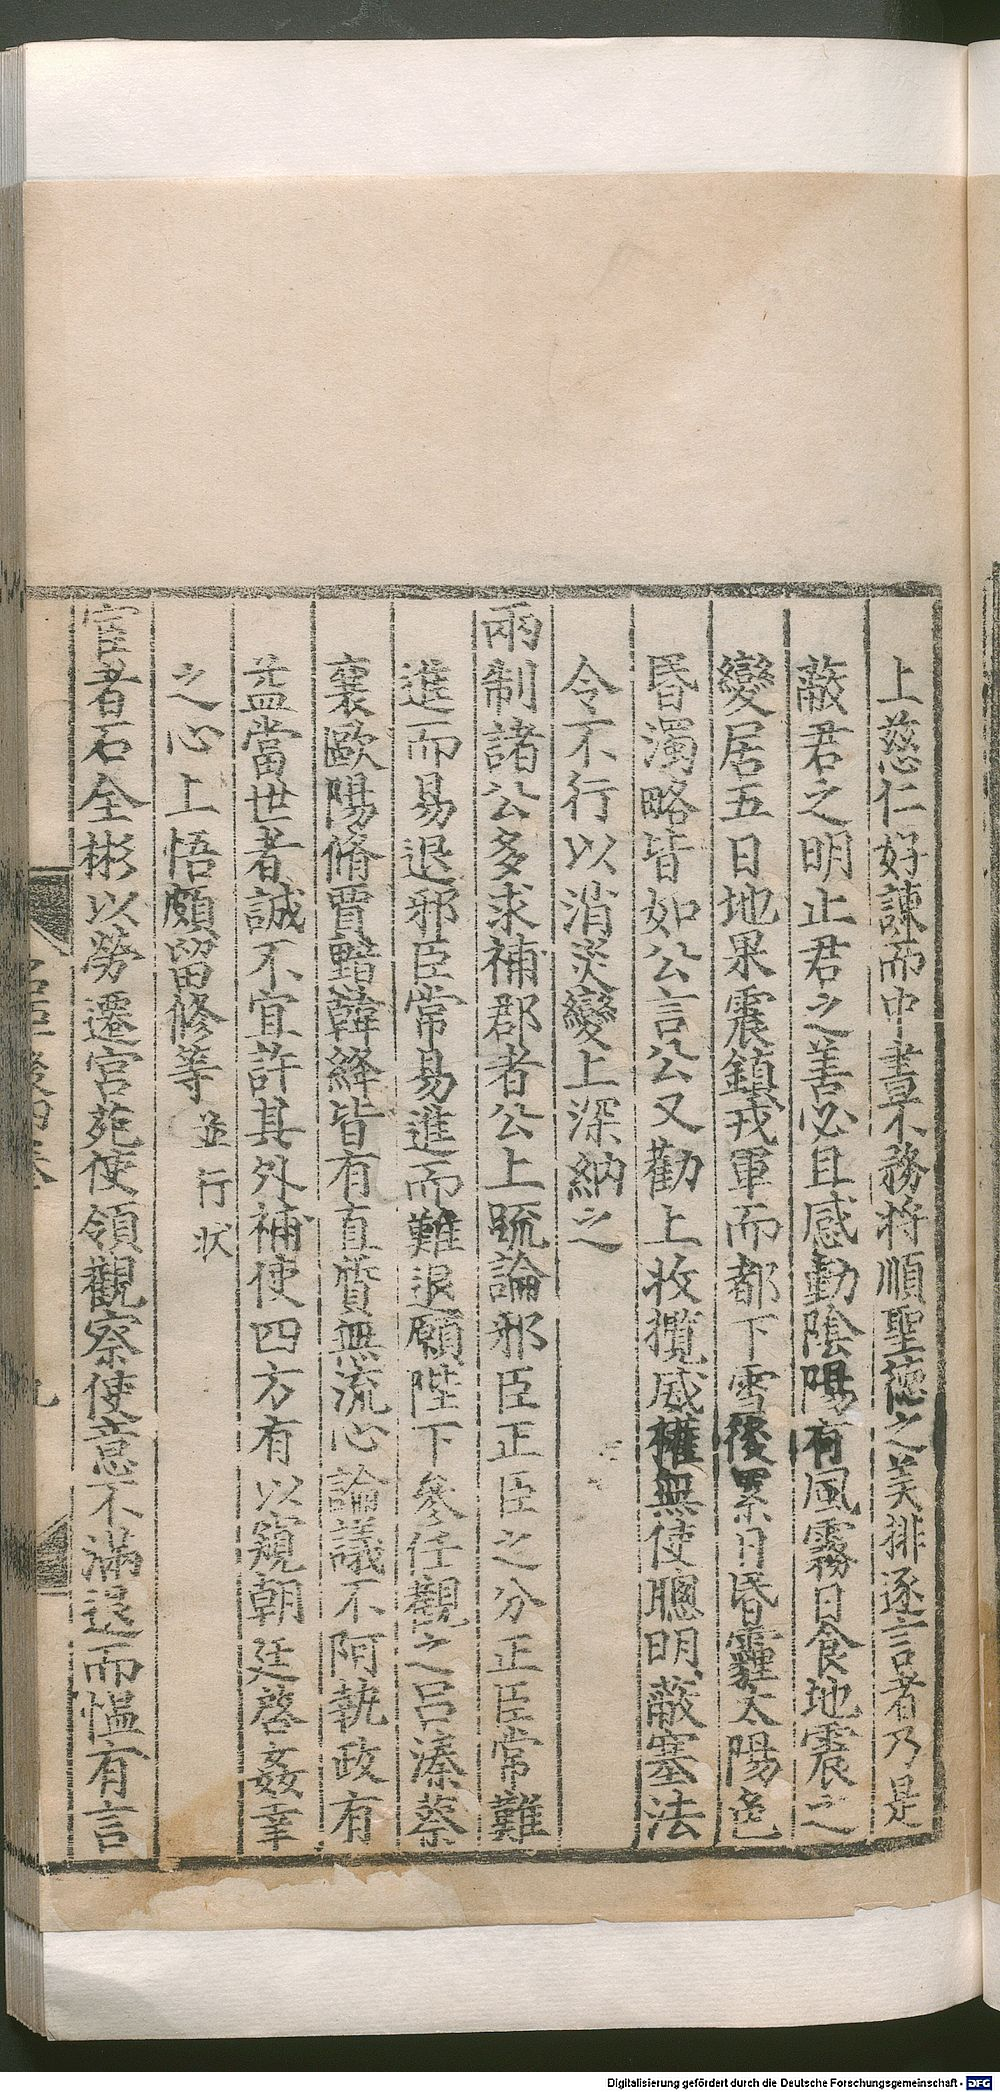 上慈仁好諫而中書不務将順聖德之美排逐言者乃是
蔽君之明止君之善必且感動陰陽有風霧日食地震之
變居五日地果震鎮戎軍而都下雪後累日昏霾太陽色
昏濁略皆如公言公又勸上收攬威權無使聰明蔽塞法
令不行以消災變上深納之
兩制諸公多求補郡者公上䟽論邪臣正臣之分正臣常難
進而易退邪臣常易進而難退願陛下參任觀之呂溱蔡
襄歐陽脩賈黯韓絳皆有直質無流心論議不阿執政有
益當世者誠不宜許其外補使四方有以窺朝廷啓姦幸
之心上悟頗留修等 並行状
宦者石全彬以勞遷宮苑使領觀察使意不滿退而慍有言
名臣後四卷
九
Digitalisierung gefördert durch die Deutsche Forschungsgemeinschaft - DFG